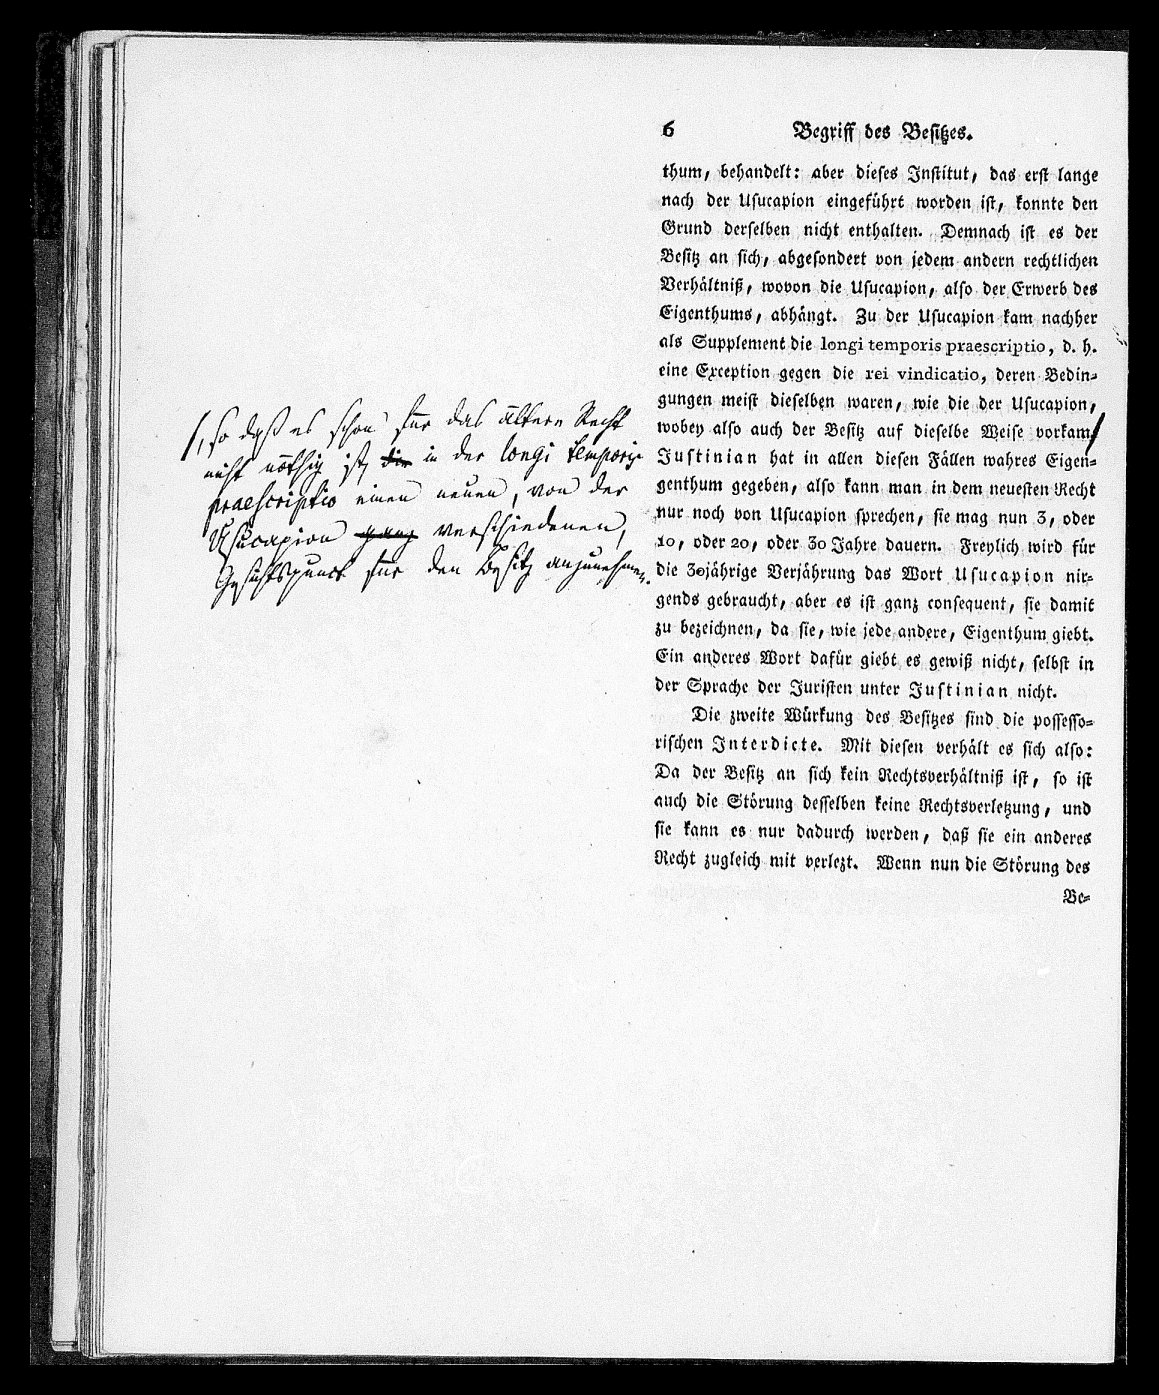 6 Begriff des Besitzes.
thum, behandelt: aber dieses Institut, das erst lange
nach der Usucapion eingeführt worden ist, konnte den
Grund derselben nicht enthalten. Demnach ist es der
Besitz an sich, abgesondert von jedem andern rechtlichen
Verhältniß, wovon die Usucapion, also der Erwerb des
Eigenthums, abhängt. Zu der Usucapion kam nachher
als Supplement die longi temporis praescriptio, d. h.
eine Exception gegen die rei vindicatio, deren Bedin-
gungen meist dieselben waren, wie die der Usucapion,
wobey also auch der Besitz auf dieselbe Weise vorkam
Justinian hat in allen diesen Fällen wahres Eigen-
genthum gegeben, also kann man in dem neuesten Recht
nur noch von Usucapion sprechen, sie mag nun 3, oder
10, oder 20, oder 30 Jahre dauern. Freylich wird für
die 30jährige Verjährung das Wort Usucapion nir-
gends gebraucht, aber es ist ganz consequent, sie damit
zu bezeichnen, da sie, wie jede andere, Eigenthum giebt.
Ein anderes Wort dafür giebt es gewiß nicht, selbst in
der Sprache der Juristen unter Justinian nicht.
Die zweite Würkung des Besitzes sind die possesso-
rischen Interdicte. Mit diesen verhält es sich also:
Da der Besitz an sich kein Rechtsverhältniß ist, so ist
auch die Störung desselben keine Rechtsverletzung, und
sie kann es nur dadurch werden, daß sie ein anderes
Recht zugleich mit verlezt. Wenn nun die Störung des
Be-
/, so daß es schon für das ältere Recht
nicht nöthig ist, die in der longi temporis
praescriptio einen neuen, von der
Usucapion ganz verschiedenen,
Gesichtspunct für den Besitz anzunehmen.